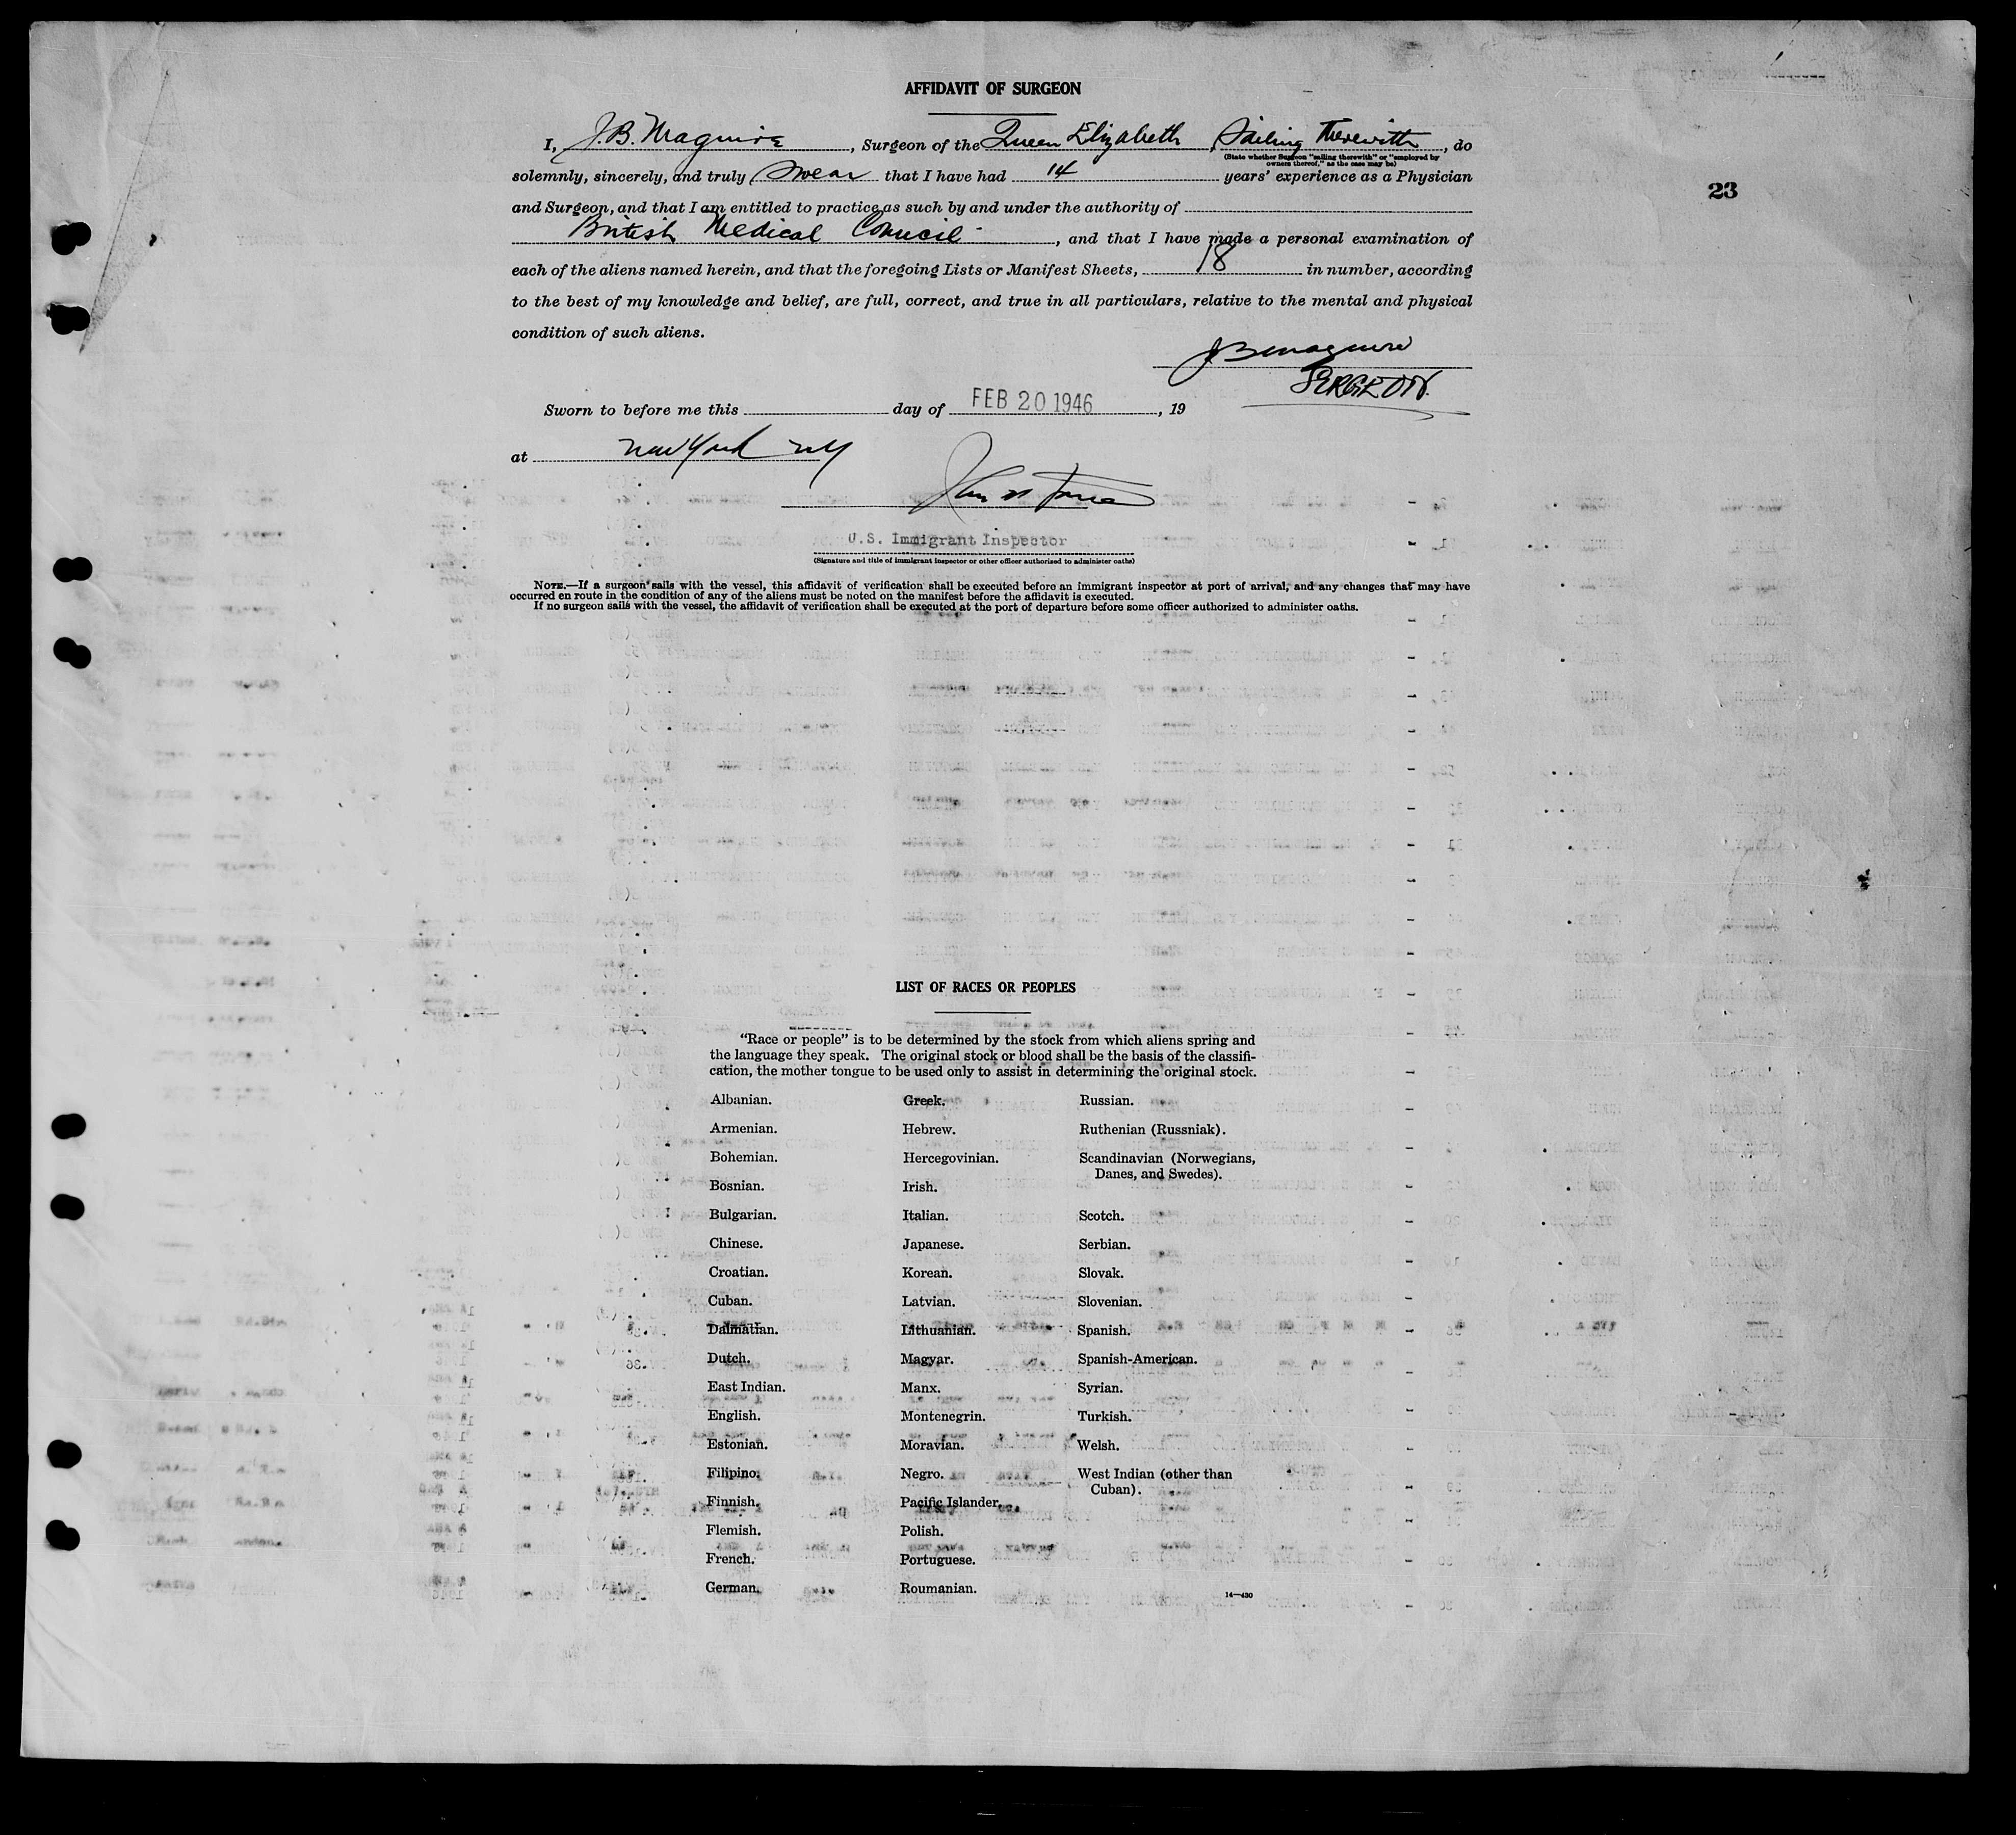 AFFIDAVIT OF SURGEON
I, J.B. Maguire, Surgeon of the Queen Elizabeth, Sailing Therewith, do
(State whether Surgeon "sailing therewith" or "employed by
owners thereof," as the case may be)
solemnly, sincerely, and truly swear that I have had 14 years' experience as a Physician
23
and Surgeon, and that I am entitled to practice as such by and under the authority of
British Medical Council, and that I have made a personal examination of
each of the aliens named herein, and that the foregoing Lists or Manifest Sheets, 18 in number, according
to the best of my knowledge and belief, are full, correct, and true in all particulars, relative to the mental and physical
condition of such aliens.
JB Maguire
SURGEON.
Sworn to before me this day of FEB 20 1946, 19
at New York NY
U.S. Immigrant Inspector
(Signature and title of immigrant inspector or other officer authorized to administer oaths)
NOTE.—If a surgeon sails with the vessel, this affidavit of verification shall be executed before an immigrant inspector at port of arrival, and any changes that may have
occurred en route in the condition of any of the aliens must be noted on the manifest before the affidavit is executed.
If no surgeon sails with the vessel, the affidavit of verification shall be executed at the port of departure before some officer authorized to administer oaths.
LIST OF RACES OR PEOPLES
"Race or people" is to be determined by the stock from which aliens spring and
the language they speak. The original stock or blood shall be the basis of the classifi-
cation, the mother tongue to be used only to assist in determining the original stock.
Albanian.
Armenian.
Bohemian.
Bosnian.
Bulgarian.
Chinese.
Croatian.
Cuban.
Dalmatian.
Dutch.
East Indian.
English.
Estonian.
Filipino.
Finnish.
Flemish.
French.
German.
Greek.
Hebrew.
Hercegovinian.
Irish.
Italian.
Japanese.
Korean.
Latvian.
Lithuanian.
Magyar.
Manx.
Montenegrin.
Moravian.
Negro.
Pacific Islander.
Polish.
Portuguese.
Roumanian.
Russian.
Ruthenian (Russniak).
Scandinavian (Norwegians,
Danes, and Swedes).
Scotch.
Serbian.
Slovak.
Slovenian.
Spanish.
Spanish-American.
Syrian.
Turkish.
Welsh.
West Indian (other than
Cuban).
14—430